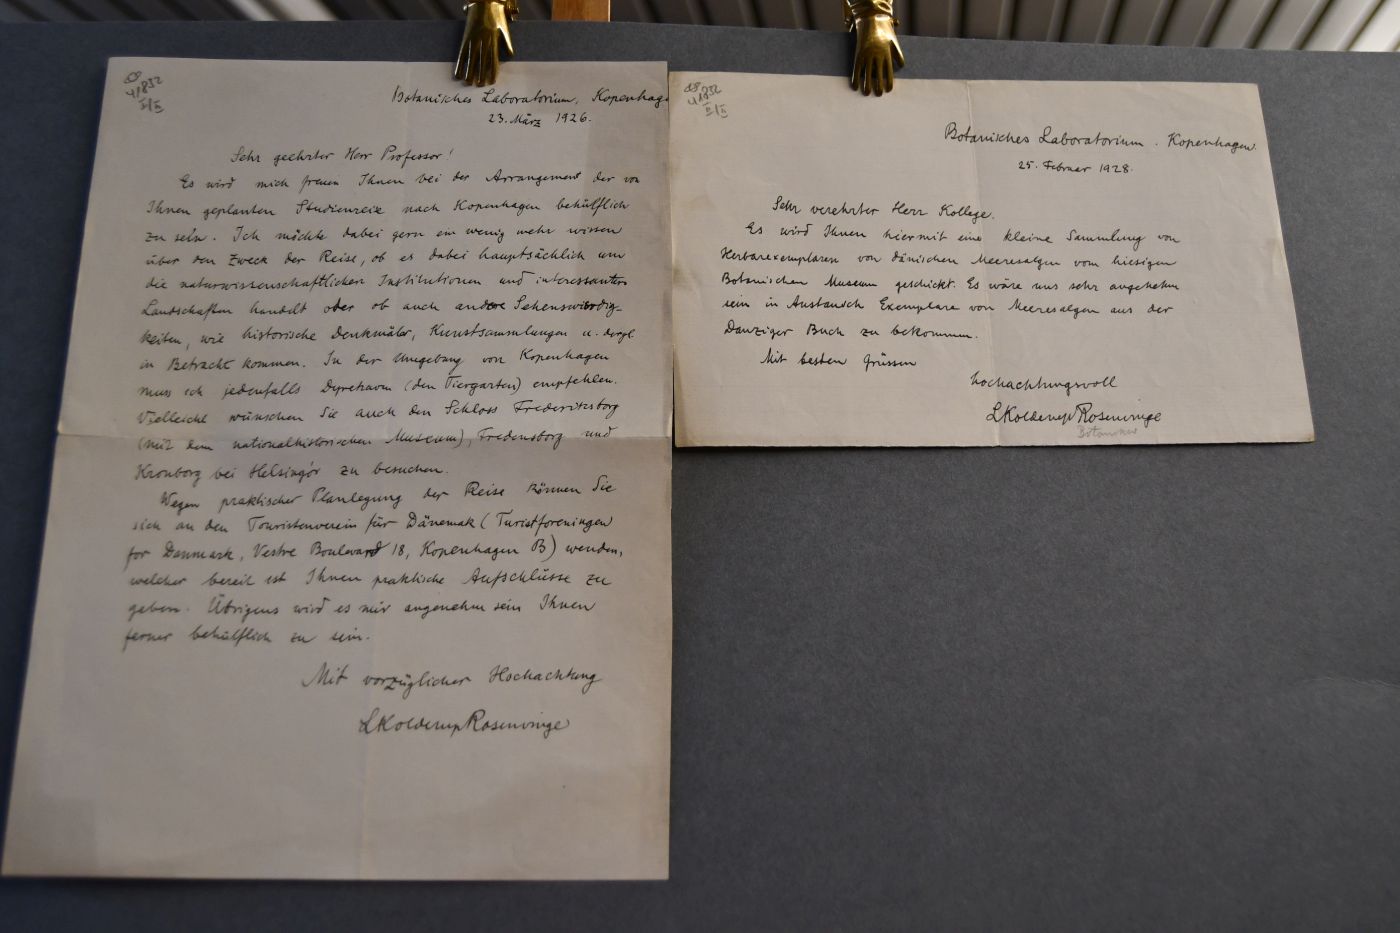 41852
II/II
Botanisches Laboratorium, Kopenhag
23. März 1926.
Sehr geehrter Herr Professor!
Es wird mich freuen Ihnen bei der Arrangement der von
Ihnen geplanten Studienreise nach Kopenhagen behülflich
zu sein. Ich möchte dabei gern ein wenig mehr wissen
über den Zweck der Reise, ob es dabei hauptsächlich um
die naturwissenschaftlichen Institutionen und interessanten
Landschaften handelt oder ob auch andere Sehenswürdig-
keiten, wie historische Denkmäler, Kunstsammlungen u. dergl.
in Betracht kommen. In der Umgebung von Kopenhagen
muss ich jedenfalls Dyrehaven (den Tiergarten) empfehlen.
Vielleicht wünschen Sie auch den Schloss Frederiksborg
(mit dem nationalhistorischen Museum), Fredensborg und
Kronborg bei Helsingör zu besuchen.
Wegen praktischer Planlegung der Reise können Sie
sich an den Touristenverein für Dänemak (Turistforeningen
for Danmark, Vestre Boulevard 18, Kopenhagen B) wenden,
welcher bereit ist Ihnen praktische Aufschlüsse zu
geben. Übrigens wird es mir angenehm sein Ihnen
ferner behülflich zu sein.
Mit vorzüglicher Hochachtung
LKolderupRosenvinge
41852
II/II
Botanisches Laboratorium. Kopenhagen.
25. Februar 1928.
Sehr verehrter Herr Kollege.
Es wird Ihnen hiermit eine kleine Sammlung von
Herbarexemplaren von dänischen Meeresalgen vom hiesigen
Botanischen Museum geschickt. Es wäre uns sehr angehehm
sein in Austausch Exemplare von Meeresalgen aus der
Danziger Buch zu bekommen.
Mit besten Grüssen
hochachtungsvoll
LKolderupRosenvinge
Botaniker